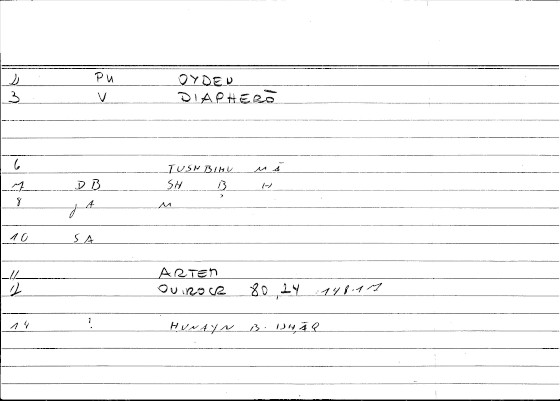 2 PN OYDEN
3 V DIAPHERŌ
6 TUSHBIHU MĀ
7 DB SH B H
8 JA M
10 SA
11 ARTEM
12 80,24 148.17
14 ? HUNAYN B. ISḤĀQ